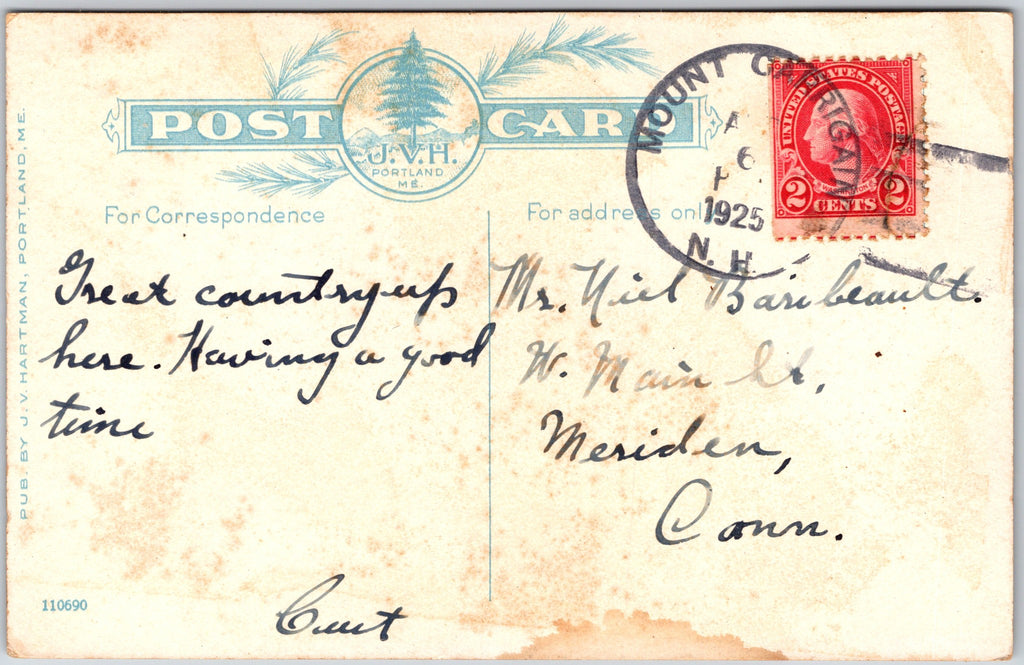 POST CARD
J.V.H.
PORTLAND
ME.
For Correspondence
For address only
PUB. BY J. V. HARTMAN, PORTLAND, ME.
MOUNT CARRIGAIN
6
1925
N. H.
UNITED STATES POSTAGE
WASHINGTON
2 CENTS 2
Great country up
here. Having a good
time
Curt
Mr. Niel Baribeault.
W. Main St,
Meriden,
Conn.
110690